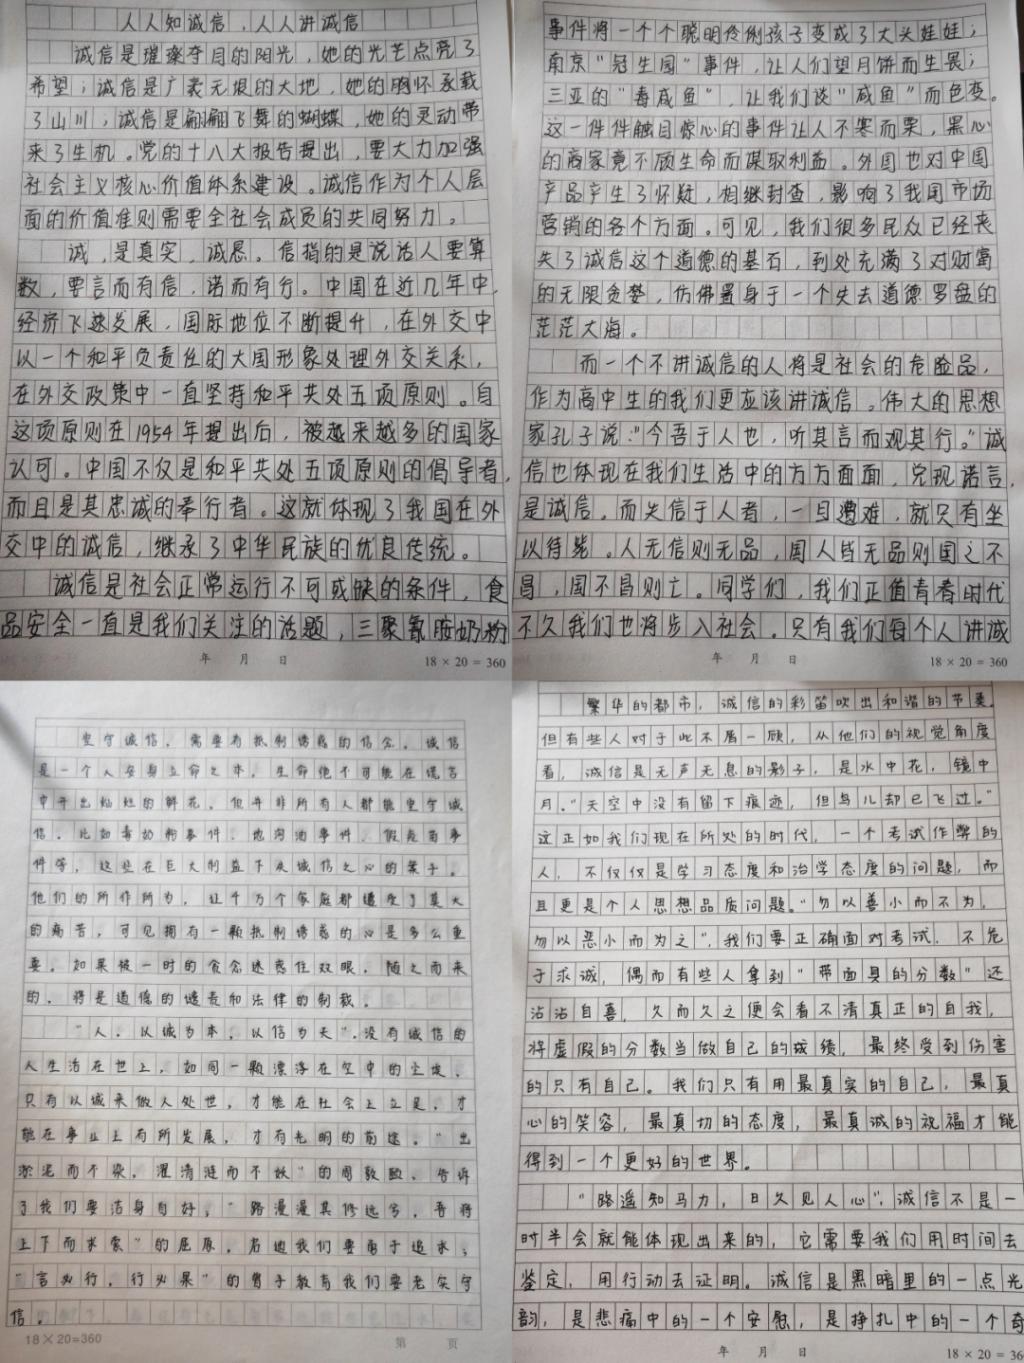 人人知诚信，人人讲诚信
诚信是璀璨夺目的阳光，她的光芒点亮了
希望；诚信是广袤无垠的大地，她的胸怀承载
了山川；诚信是翩翩飞舞的蝴蝶，她的灵动带
来了生机。党的十八大报告提出，要大力加强
社会主义核心价值体系建设。诚信作为个人层
面的价值准则需要全社会成员的共同努力。
诚，是真实，诚恳。信指的是说话人要算
数，要言而有信，诺而有行。中国在近几年中，
经济飞速发展，国际地位不断提升，在外交中
以一个和平负责任的大国形象处理外交关系，
在外交政策中一直坚持和平共处五项原则。自
这项原则在1954年提出后，被越来越多的国家
认可。中国不仅是和平共处五项原则的倡导者，
而且是其忠诚的奉行者。这就体现了我国在外
交中的诚信，继承了中华民族的优良传统。
诚信是社会正常运行不可或缺的条件，食
品安全一直是我们关注的话题，三聚氰胺奶粉
年 月 日
18×20=360
事件将一个个聪明伶俐孩子变成了大头娃娃；
南京“冠生园”事件，让人们望月饼而生畏；
三亚的“毒咸鱼”，让我们谈“咸鱼”而色变。
这一件件触目惊心的事件让人不寒而栗，黑心
的商家竟不顾生命而谋取利益。外国也对中国
产品产生了怀疑，相继封查，影响了我国市场
营销的各个方面。可见，我们很多民众已经丧
失了诚信这个道德的基石，到处充满了对财富
的无限贪婪，仿佛置身于一个失去道德罗盘的
茫茫大海。
而一个不讲诚信的人将是社会的危险品，
作为高中生的我们更应该讲诚信。伟大的思想
家孔子说：“今吾于人也，听其言而观其行。”诚
信也体现在我们生活中的方方面面，兑现诺言，
是诚信。而失信于人者，一旦遭难，就只有坐
以待毙。人无信则无品，国人皆无品则国之不
昌，国不昌则亡。同学们，我们正值青春时代
不久我们也将步入社会。只有我们每个人讲诚
年 月 日
18×20=360
坚守诚信，需要有抵制诱惑的信念。诚信
是一个人安身立命之本，生命绝不可能在谎言
中开出灿烂的鲜花。但并非所有人都能坚守诚
信，比如毒奶粉事件，地沟油事件，假疫苗事
件等，这些在巨大利益下丧诚信之心的案子。
他们的所作所为，让千万个家庭都遭受了莫大
的痛苦，可见拥有一颗抵制诱惑的心是多么重
要。如果被一时的贪念迷惑住双眼，随之而来
的，将是道德的谴责和法律的制裁。
“人，以诚为本，以信为天”，没有诚信的
人生活在世上，如同一颗漂浮在空中的尘埃，
只有以诚来做人处世，才能在社会上立足，才
能在事业上有所发展，才有光明的前途。“出
淤泥而不染，濯清涟而不妖”的周敦颐，告诉
了我们要洁身自好，“路漫漫其修远兮，吾将
上下而求索”的屈原，启迪我们要勇于追求；
“言必行，行必果”的曾子教育我们要老实守
信。
18×20=360
第 页
繁华的都市，诚信的彩笛吹出和谐的节奏。
但有些人对于此不屑一顾，从他们的视觉角度
看，诚信是无声无息的影子，是水中花，镜中
月。“天空中没有留下痕迹，但鸟儿却已飞过。”
这正如我们现在所处的时代，一个考试作弊的
人，不仅仅是学习态度和治学态度的问题，而
且更是个人思想品质问题。“勿以善小而不为，
勿以恶小而为之”，我们要正确面对考试，不危
于求诚，偶而有些人拿到“带面具的分数”还
沾沾自喜，久而久之便会看不清真正的自我，
将虚假的分数当做自己的成绩，最终受到伤害
的只有自己。我们只有用最真实的自己，最真
心的笑容，最真切的态度，最真诚的祝福才能
得到一个更好的世界。
“路遥知马力，日久见人心”，诚信不是一
时半会就能体现出来的，它需要我们用时间去
鉴定，用行动去证明。诚信是黑暗里的一点光
韵，是悲痛中的一个安慰，是挣扎中的一个奇
年 月 日
18×20=36